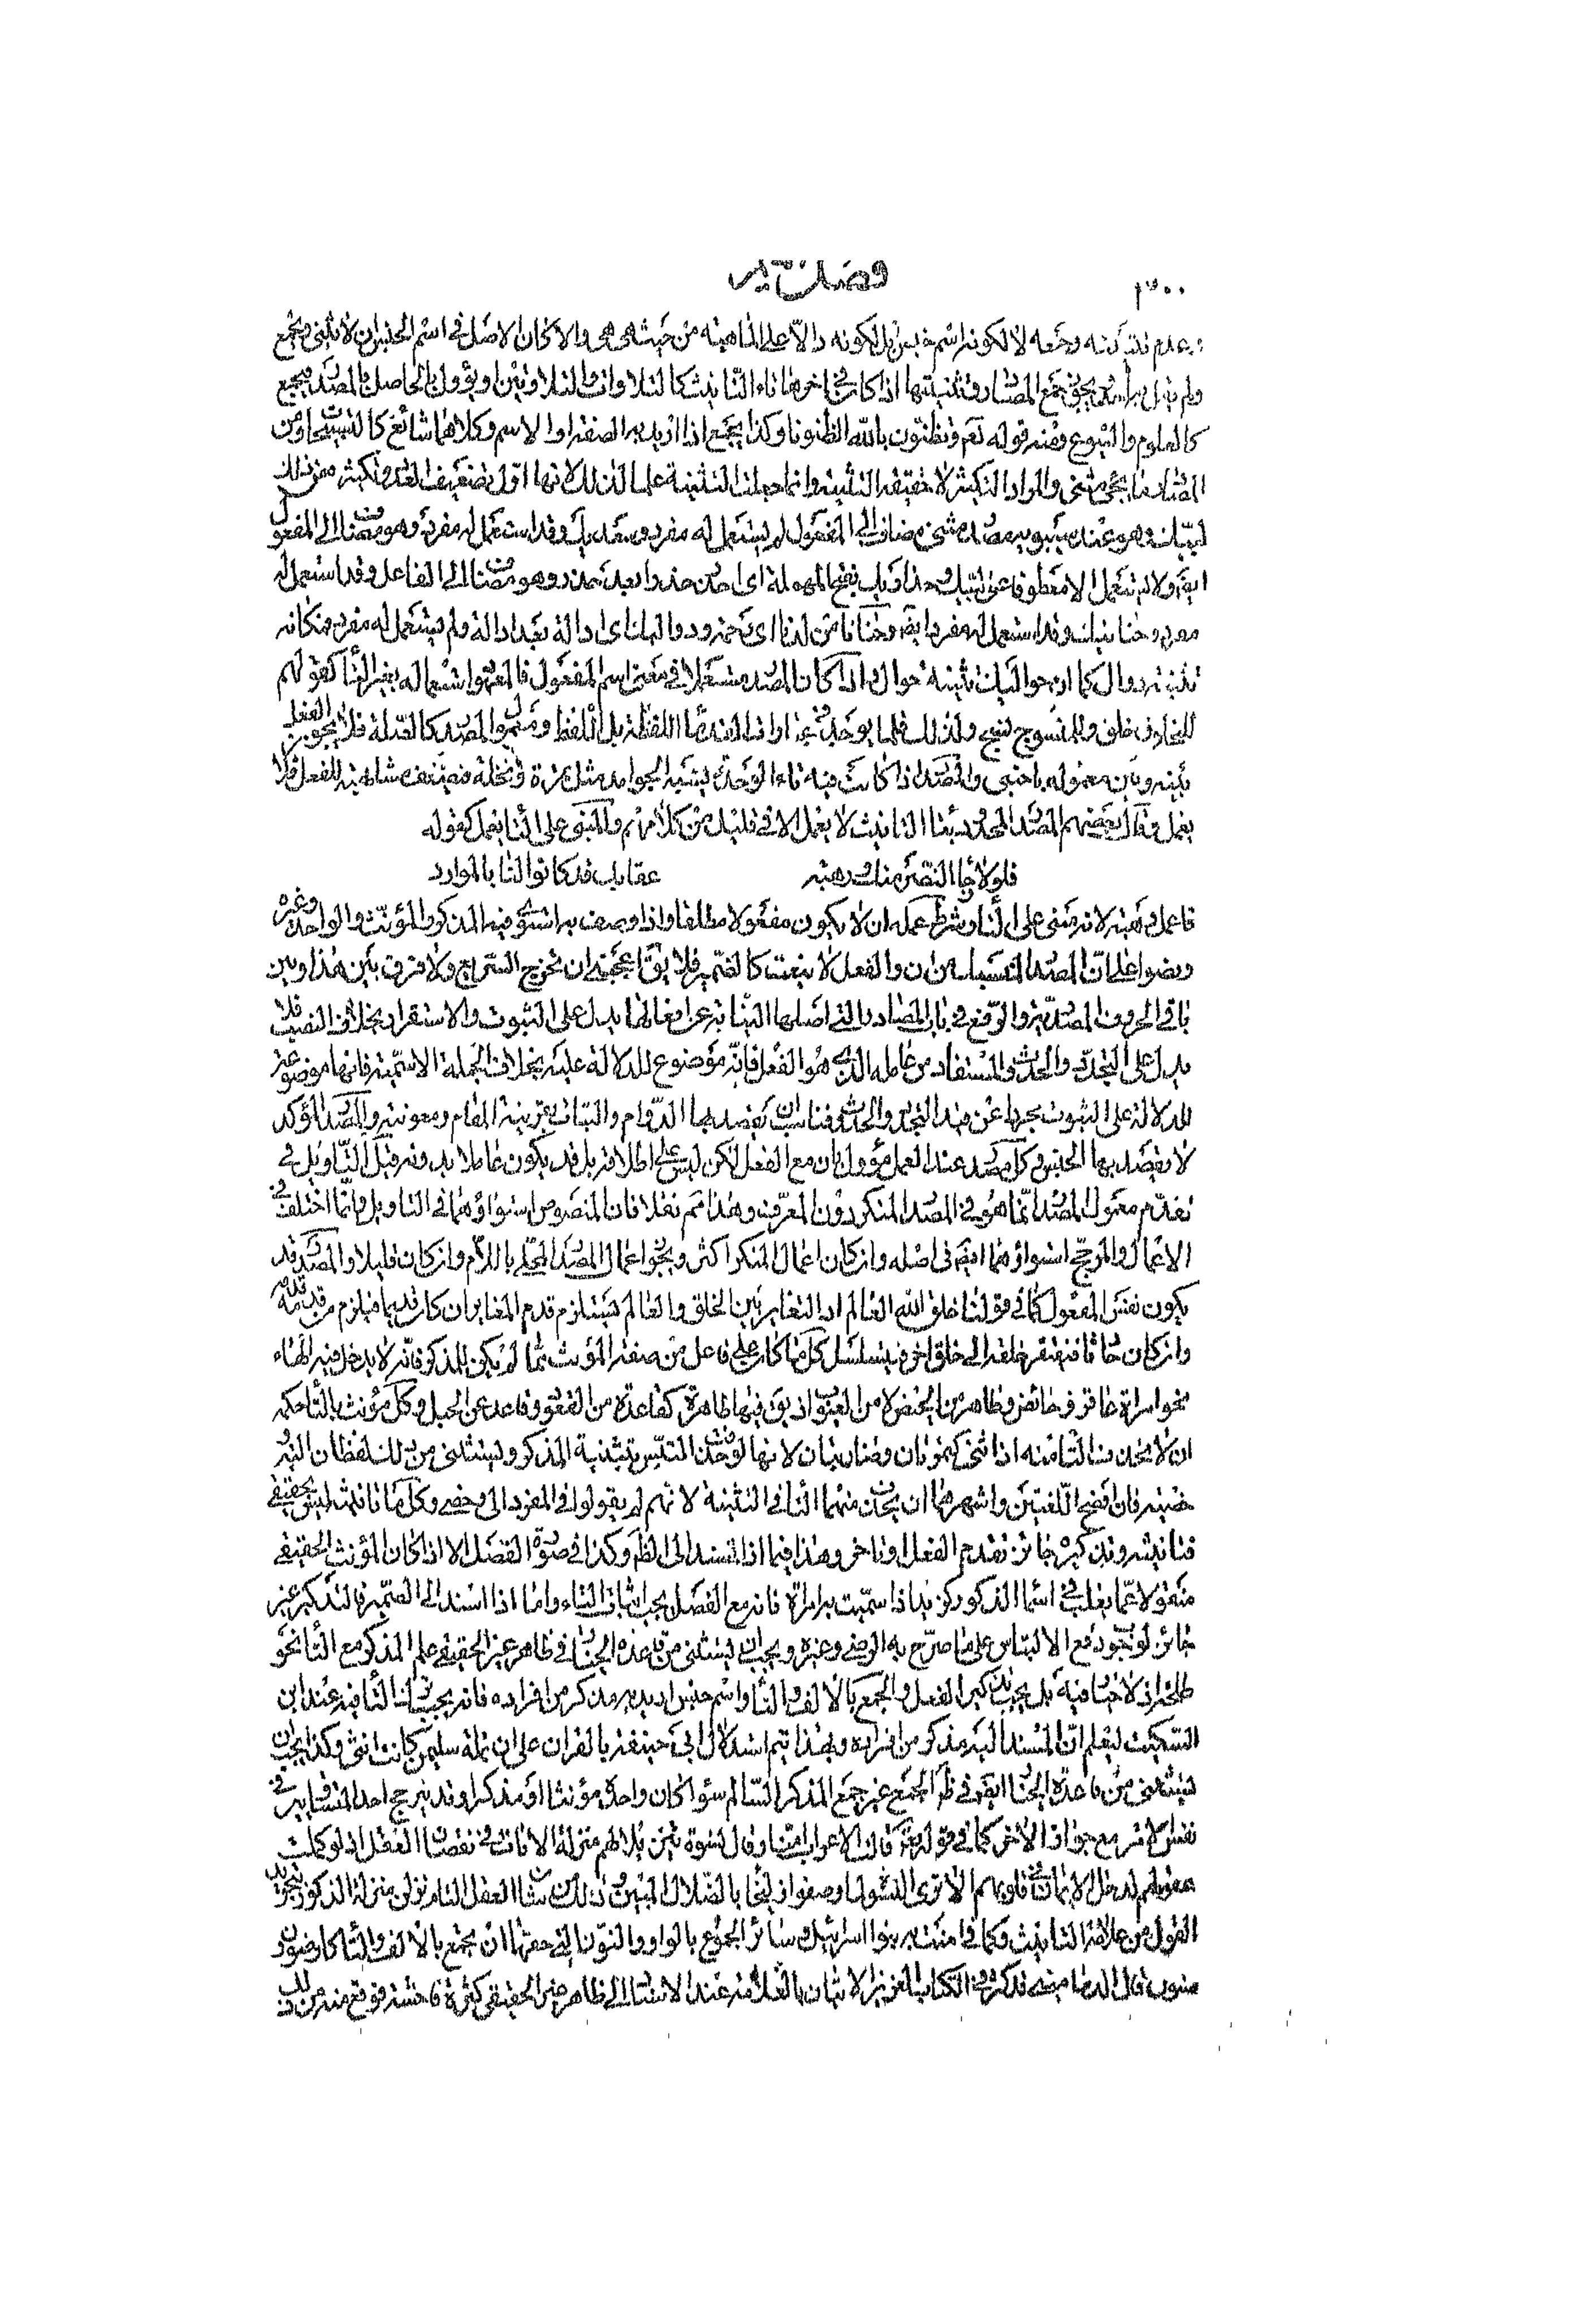 ٣٠٠ فصل الميم
وعدم تثنيته وجمعه لا لكونه اسم جنس بل لكونه دالا على الماهية من حيث هي هي والا كان الاصل في اسم الجنس ان لا يثنى ويجمع
ولم يقل به يجوز جمع المصادر وتثنيتها اذا كان في اخرها تاء التانيث كالتلاوات والتلاوتين او يؤول بالحاصل بالمصدر فيجمع
كالعلوم والبيوع ومنه قوله تعم وتظنون بالله الظنونا وكذا يجمع اذا اريد به الصفة او الاسم وكلاهما شائع كالتسبيحات ومن
المصادر ما يجئ مثنى والمراد التكثير لا حقيقة التثنية وانما جعلت التثنية علما لذلك لانها اول تضعيف العدد وتكثيره فمن ذلك
لبيك وهو عند سيبويه مصدر مثنى مضاف الى المفعول لم يستعمل له مفرد وسعديك وقد استعمل له مفرد وهو مضاف الى المفعول
ايضا ولا يستعمل الا معطوفا على لبيك وحذاريك بفتح المهملة اي حذرا بعد حذر وهو مضاف الى الفاعل وقد استعمل له
مفرد وحنانيك وقد استعمل له مفرد ايضا وحنانا من لدنا اي رحمة ودواليك اي ادالة بعد ادالة ولم يستعمل له مفرد فكانه
تثنية دوال كما ان حواليك تثنية حوال واذا كان المصدر مستعملا في معنى اسم المفعول فالمعتبر استعماله بغير التا كقولهم
للمخلوق خلق وللمنسوج نسج ولذلك قلما يوجد في عباراتنا اللفظة بل اللفظ ومنعوا المصدر كالصلة فلا يجوز الفصل
بينه وبين معموله باجنبي والمصدر اذا كانت فيه تاء الوحدة يشبه الجوامد مثل تمرة ونخلة فيضعف مشابهته للفعل فلا
يعمل وقال بعضهم المصدر المحدود بتا التانيث لا يعمل الا في قليل من كلامهم والمبنى على التا يعمل كقوله
فلولا رجا النصر منك ورهبة عقابك قد كانوا لنا بالموارد
فاعمل رهبة لانه مبنى على التا وشرط عمله ان لا يكون مفعولا مطلقا واذا وصف به استوى فيه المذكر والمؤنث والواحد وغيره
ونصوا على ان المصدر المنسبك من ان والفعل لا ينعت كالضمير فلا يقا يعجبني ان تخرج السريع ولا فرق بين هذا وبين
باقي الحروف المصدرية والرفع في باب المصادر التي اصلها النيابة عن افعالها يدل على الثبوت والاستقرار بخلاف النصب فلا
يدل على التجدد والحدوث المستفاد من عامله الذي هو الفعل فانه موضوع للدلالة عليه بخلاف الجملة الاسمية فانها موضوعة
للدلالة على الثبوت مجردا عن قيد التجدد والحدوث فناسب ان يقصد بها الدوام والثبات بقرينة المقام ومعونته والمصدر المؤكد
لا يقصد بها الجنس وكل مصدر عند العمل مؤول بان مع الفعل لكن ليس على اطلاقه بل قد يكون عاملا بدونه وقيل التاويل في
تقدم معمول المصدر انما هو في المصدر المنكر دون المعرف وهذا مم نقلا فان المنصوص استواؤهما في التاويل وانما اختلف في
الاعمال والمرجح استواؤهما ايضا في اصله وان كان اعمال المنكر اكثر ويجوز اعمال المصدر المحلى باللام وان كان قليلا والمصدر قد
يكون نفس المفعول كما في قولنا خلق الله العالم اذ التغاير بين الخلق والعالم يستلزم قدم المغاير ان كان قديما فيلزم من قدمه قدمه
وان كان حادثا فيفتقر خلقه الى خلق اخر فيتسلسل كل ما كان على فاعل من صفة المؤنث مما لم يكن للمذكر فانه لا يدخل فيه الهاء
نحو امراة عاقر وحائض وطاهر من الحيض لا من العيوب اذ يقال فيها طاهرة كقاعدة من القعود وقاعد عن الحبل وكل مؤنث بالتا حكمه
ان لا يحذف التا منه اذا ثنى كتمرتان وضاربتان لانها لو حذفت التبس بتثنية المذكر ويستثنى من ذلك لفظان الية
خصيه فان افصح اللغتين واشهرهما ان يحذف منهما التا في التثنية لانهم لم يقولوا في المفرد الى وخصى وكل ما تانيثه ليس بحقيقي
فتانيثه وتذكيره جائز تقدم الفعل او تاخر وهذا فيما اذا اسند الى الظاهر وكذا في صورة الفصل الا اذا كان المؤنث الحقيقي
منقولا عما يغلب في اسماء الذكور كزيد اذا سميت به امراة فانه مع الفصل يجب اثبات التاء واما اذا اسند الى الضمير فالتذكير غير
جائز لوجوده مع الالتباس على ما صرح به الرضي وغيره ويجب ان يستثنى من قاعدة الخيار في ظاهر غير الحقيقي علم المذكر مع التا نحو
طلحة اذ لا خيار فيه بل يجب تذكير الفعل والجمع بالالف والتا واسم جنس اريد به مذكر من افراده فانه يجب ترك التا فيه عند ابن
السكيت ليعلم ان المسند اليه مذكور من افراده وبهذا يتم استدلال ابي حنيفة بالقران على ان نملة سليمن كانت انثى وكذا يجب ان
يستثنى من قاعدة الخيار ايضا في ظاهر الجمع غير جمع المذكر السالم سواء كان واحده مؤنثا او مذكرا وقد يرجح احد المتساويين في
نفس الامر مع جواز الاخر كما في قوله تعم قالت الاعراب امنا وقال نسوة تنزيلا لهم منزلة الاناث في نقصان العقل اذ لو كملت
عقولهم لدخل الايمان في قلوبهم الا ترى النسوة لما وصفوا زليخا بالضلال المبين وذلك من شان العقل التام نزلن منزلة الذكور بتجريد
القول من علامة التانيث وكما في امنت به بنوا اسرائيل وسائر الجموع بالواو والنون التي حقها ان يجمع بالالف والتا كارضون
سنون قال الدماميني تذكره في الكتاب العزيز الاتيان بالعلامة عند الاسناد الى ظاهر غير الحقيقي كثرة فاشية فوقع منه من ذلك